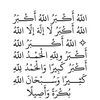 اللهُ أَكْبَرُ اللهُ أَكْبَرُ
اللهُ أَكْبَرُ لَا إِلٰهَ إِلَّا
اللهُ اللهُ أَكْبَرُ اللهُ
أَكْبَرُ وَلِلّٰهِ الْحَمْدُ اللهُ
أَكْبَرُ كَبِيرًا وَالْحَمْدُ لِلّٰهِ
كَثِيرًا وَسُبْحَانَ اللهِ
بُكْرَةً وَأَصِيلًا